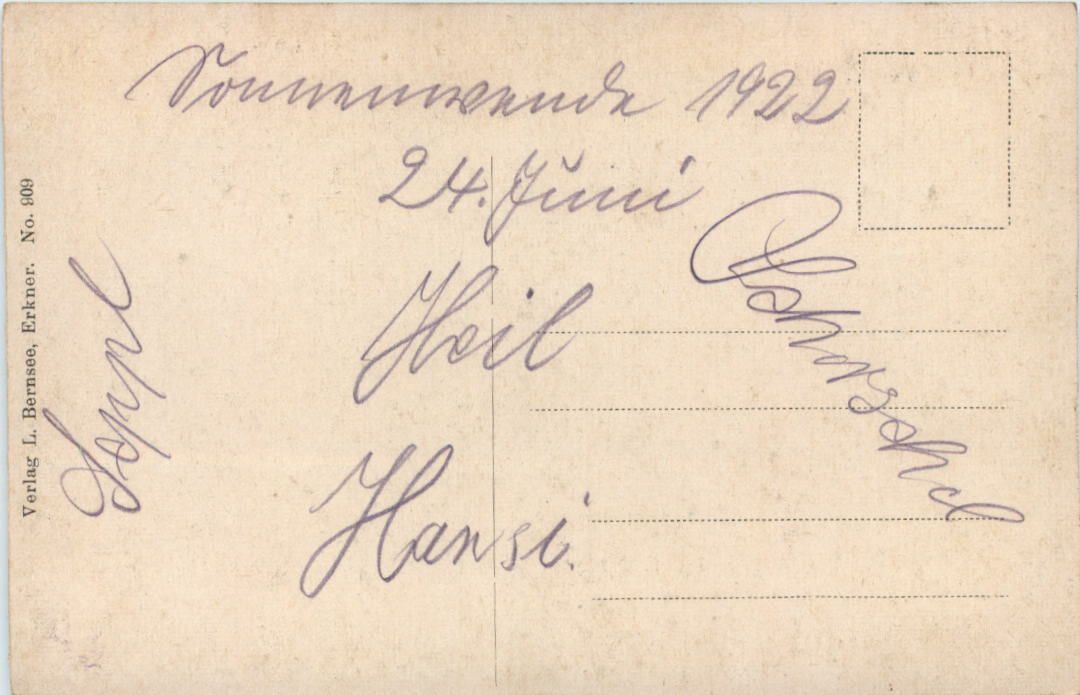 Sonnenwende 1922
24. Juni
Heil
Hansi.
Seppl
Schorschl
Verlag L. Bernsee, Erkner. No. 909